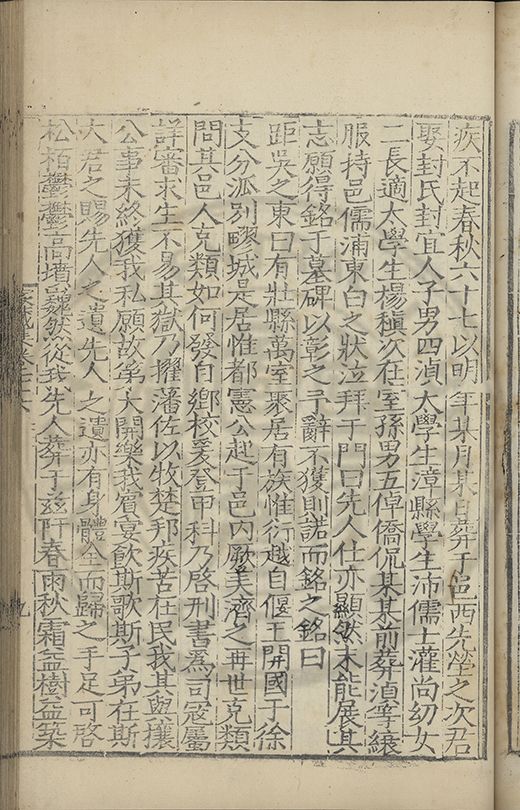 疾不起春秋六十七以明年某月某日葬于邑西先塋之次君
娶封氏封宜人子男四湞大學生漳縣學生沛儒士灌尚幼女
二長適太學生楊稹次在室孫男五倬僑侃某某前葬湞等縗
服持邑儒浦東白之狀泣拜于門曰先人仕亦顯然未能展其
志願得銘于墓碑以彰之予辭不獲則諾而銘之銘曰
距吳之東曰有壯縣萬室聚居有族惟衍越自偃王開國于徐
支分派別疁城是居惟都憲公起于邑内厥美濟之再世克類
問其邑人克類如何發自鄉校爰登甲科乃啓刑書爲司寇屬
詳審求生不易其獄乃擢藩佐以牧楚邦疾苦在民我其與攘
公事未終獲我私願故第大開樂我賓宴飲斯歌斯子弟在斯
大君之賜先人之遺先人之遺亦有身體全而歸之手足可啓
松柏鬱鬱高墳巍然從我先人葬于兹阡春雨秋霜益樹益築
家藏集卷七十六
九